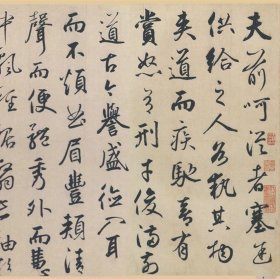 夫前呵從者塞途
供給之人各執其物
夾道而疾馳喜有
賞怒有刑才俊滿前
道古今譽盛德入耳
而不煩曲眉豐頰清
聲而便體秀外而惠
中飄輕裾翳長袖